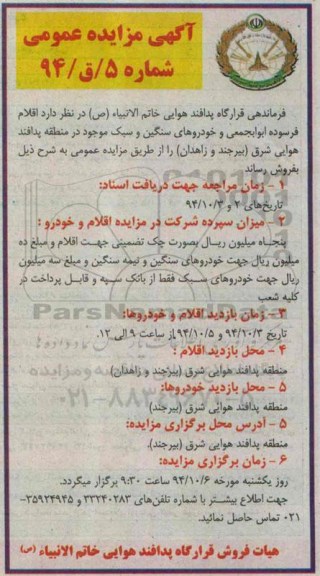 آگهی مزایده عمومی
شماره ۵/ق/۹۴
فرماندهی قرارگاه پدافند هوایی خاتم الانبیاء (ص) در نظر دارد اقلام
فرسوده ابوابجمعی و خودروهای سنگین و سبک موجود در منطقه پدافند
هوایی شرق (بیرجند و زاهدان) را از طریق مزایده عمومی به شرح ذیل
بفروش رساند
۱ - زمان مراجعه جهت دریافت اسناد:
تاریخ‌های ۲ و ۹۴/۱۰/۳
۲ - میزان سپرده شرکت در مزایده اقلام و خودرو :
پنجاه میلیون ریال بصورت چک تضمینی جهت اقلام و مبلغ ده
میلیون ریال جهت خودروهای سنگین و نیمه سنگین و مبلغ سه میلیون
ریال جهت خودروهای سبک فقط از بانک سپه و قابل پرداخت در
کلیه شعب
۳ - زمان بازدید اقلام و خودروها:
تاریخ ۹۴/۱۰/۳ و ۹۴/۱۰/۵ از ساعت ۹ الی ۱۲.
۴ - محل بازدید اقلام :
منطقه پدافند هوایی شرق (بیرجند و زاهدان)
۵ - محل بازدید خودروها:
منطقه پدافند هوایی شرق (بیرجند)
۵ - آدرس محل برگزاری مزایده:
منطقه پدافند هوایی شرق (بیرجند).
۶ - زمان برگزاری مزایده:
روز یکشنبه مورخه ۹۴/۱۰/۶ ساعت ۹:۳۰ برگزار میگردد.
جهت اطلاع بیشتر با شماره تلفن‌های ۳۳۲۴۰۲۸۳ و ۳۵۹۲۴۹۴۵-
۰۲۱ تماس حاصل نمائید.
هیات فروش قرارگاه پدافند هوایی خاتم الانبیاء (ص)